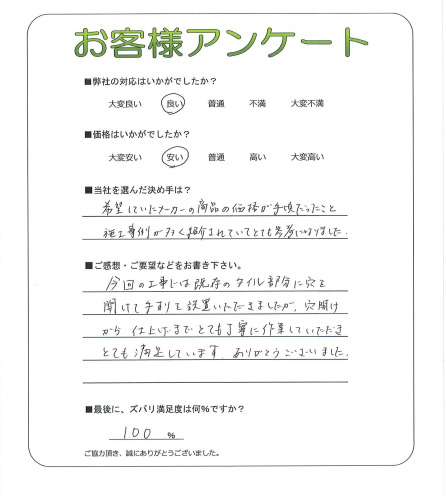 お客様アンケート
■弊社の対応はいかがでしたか?
大変良い 良い 普通 不満 大変不満
■価格はいかがでしたか?
大変安い 安い 普通 高い 大変高い
■当社を選んだ決め手は?
希望していたメーカーの商品の価格が手頃だったこと
施工事例が多く紹介されていてとても参考になりました.
■ご感想・ご要望などをお書き下さい。
今回の工事では既存のタイル部分に穴を
開けて手すりを設置いただきましたが、穴開け
から 仕上げまで とても丁寧に作業していただき
とても満足しています. ありがとうございました.
■最後に、ズバリ満足度は何%ですか?
100 %
ご協力頂き、誠にありがとうございました。